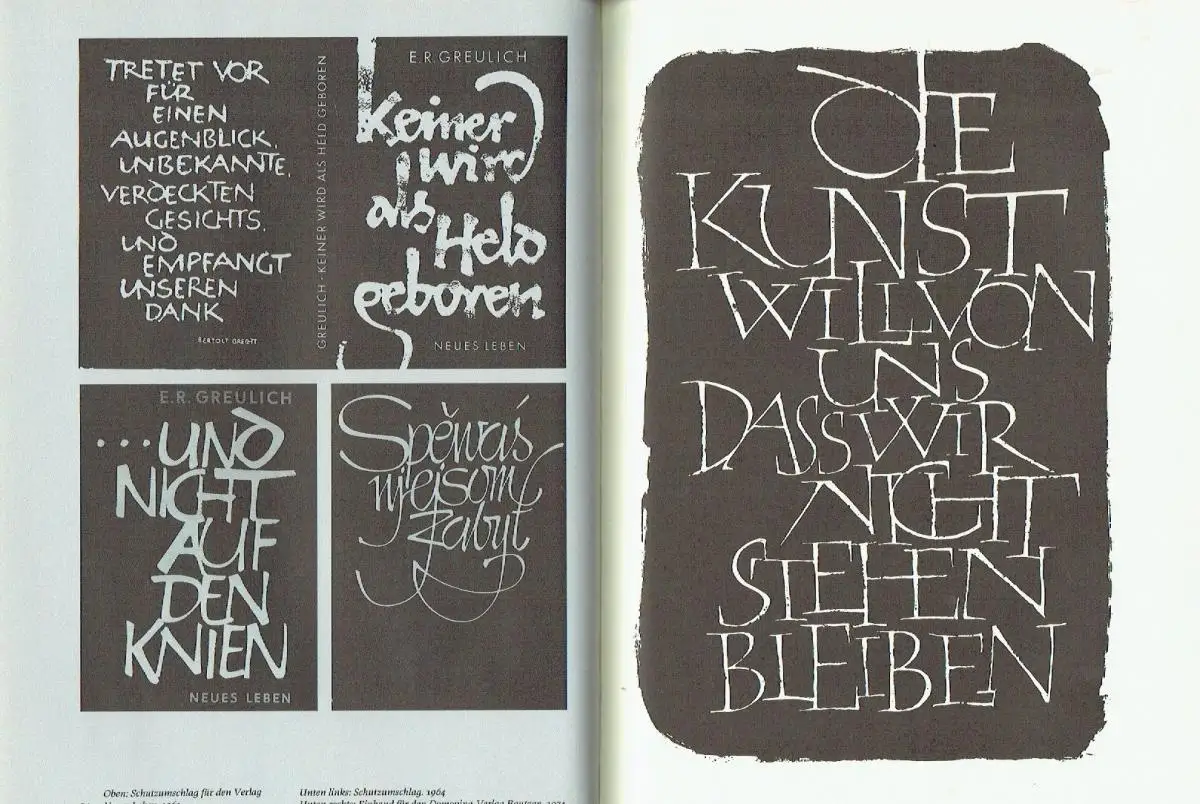 TRETET VOR
FÜR
EINEN
AUGENBLICK,
UNBEKANNTE,
VERDECKTEN
GESICHTS,
UND
EMPFANGT
UNSEREN
DANK
BERTOLT BRECHT
GREULICH · KEINER WIRD ALS HELD GEBOREN
E.R. GREULICH
Keiner
wird
als
Held
geboren
NEUES LEBEN
E.R. GREULICH
...UND
NICHT
AUF
DEN
KNIEN
NEUES LEBEN
Spěwaś
njejsom
zabył
Oben: Schutzumschlag für den Verlag
Unten links: Schutzumschlag. 1964
DIE
KUNST
WILL VON
UNS
DASS WIR
NICHT
STEHEN
BLEIBEN